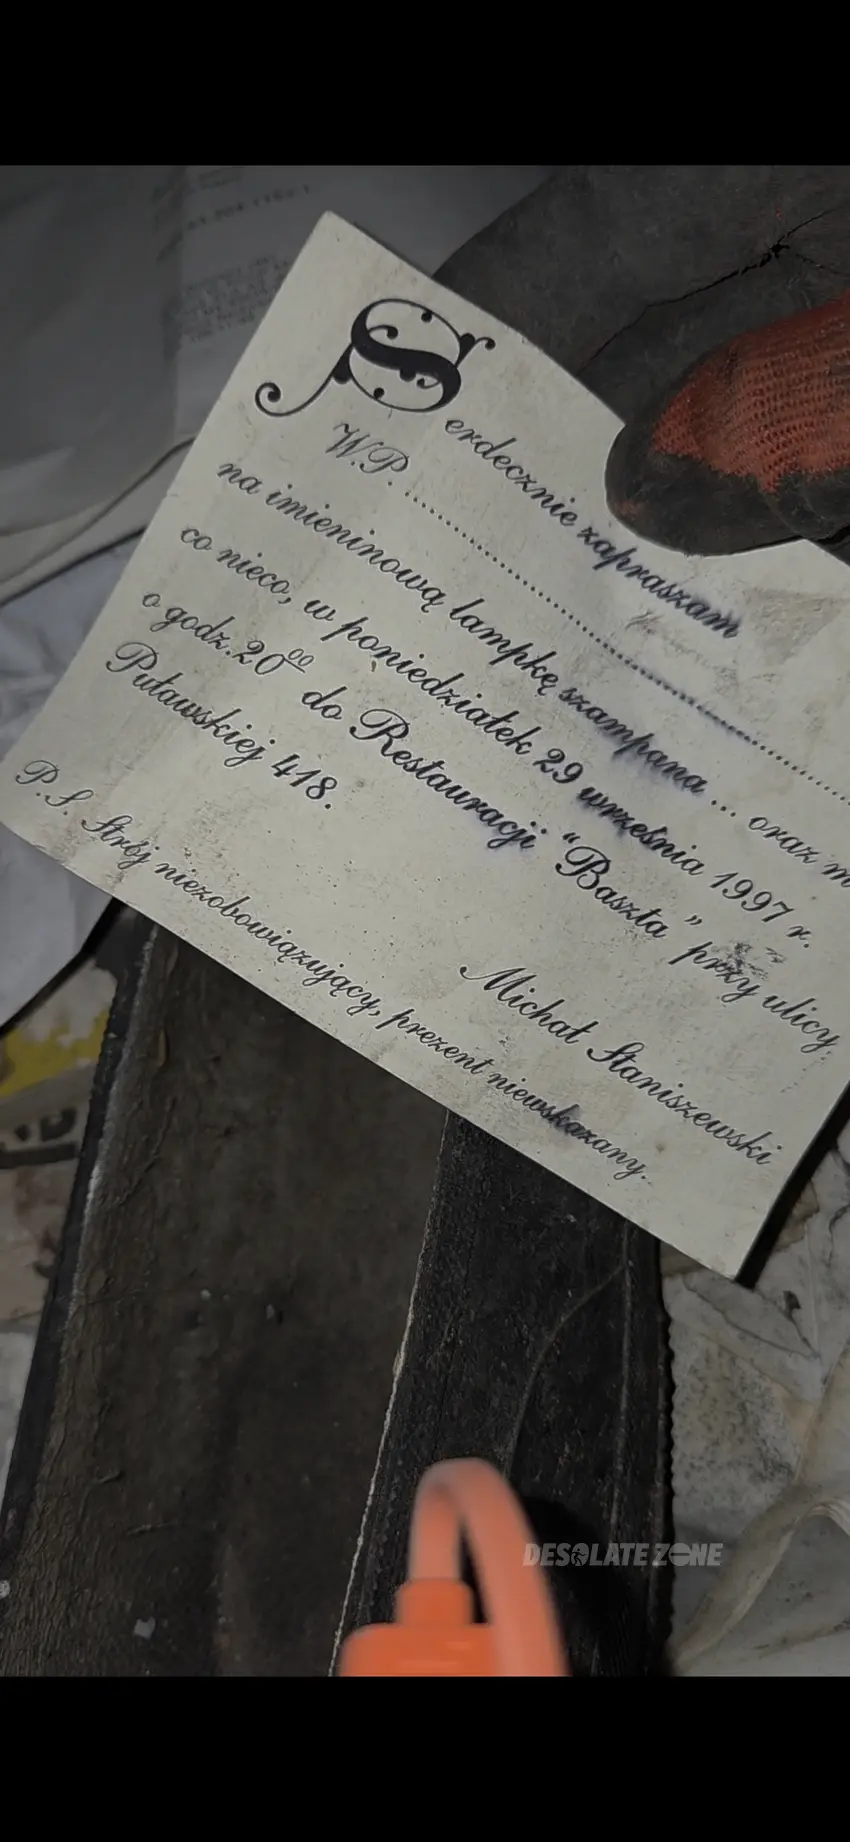 Serdecznie zapraszam
W.P. ........................................
na imieninową lampkę szampana ... oraz m
co nieco, w poniedziałek 29 września 1997 r.
o godz. 20⁰⁰ do Restauracji "Baszta" przy ulicy
Puławskiej 418.
Michał Staniszewski
P.S. Strój niezobowiązujący, prezent niewskazany.
DESOLATE ZONE